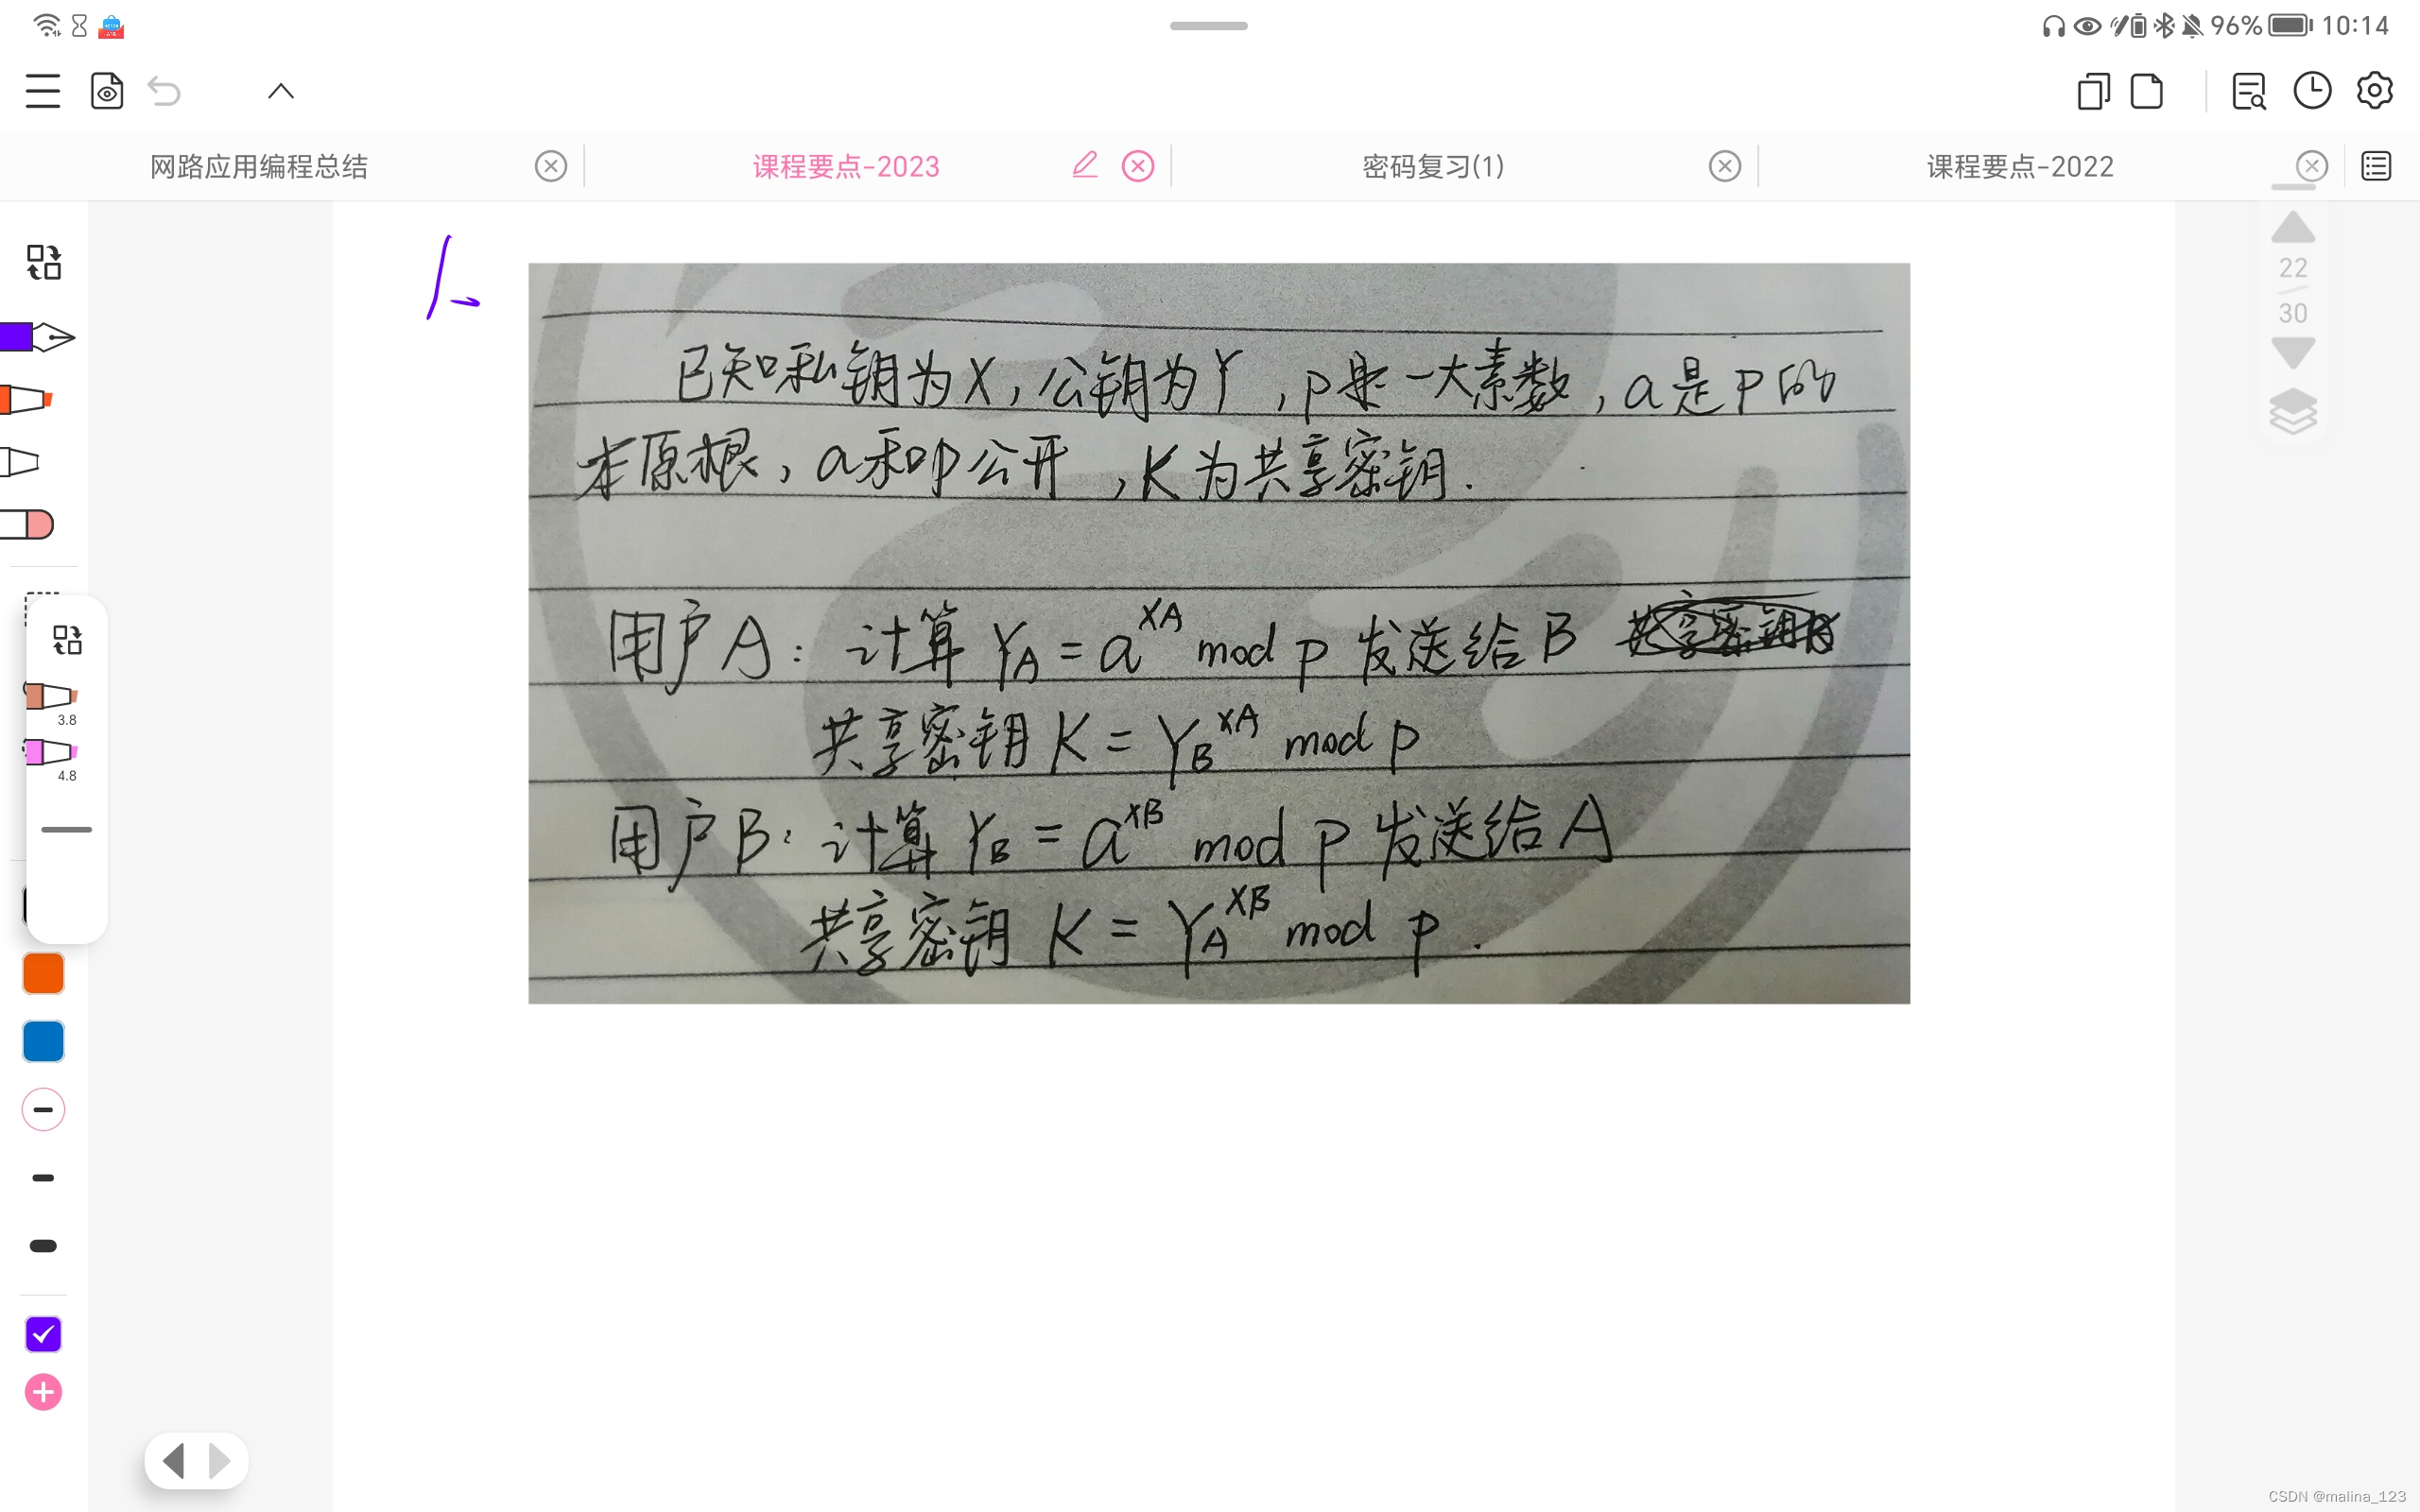 96% 10:14
网路应用编程总结 课程要点-2023 密码复习(1) 课程要点-2022
22
30
1.
已知私钥为X，公钥为Y，p是一大素数，a是p的
本原根，a和p公开，K为共享密钥.
用户A：计算 Y_A = a^{XA} mod p 发送给B
共享密钥 K = Y_B^{XA} mod p
用户B：计算 Y_B = a^{XB} mod p 发送给A
共享密钥 K = Y_A^{XB} mod p.
3.8
4.8
CSDN @malina_123